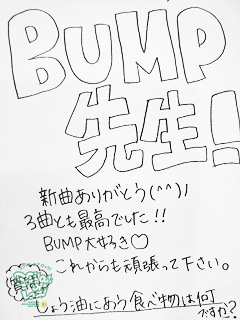 BUMP
先生!
新曲ありがとう(^^)ノ
3曲とも最高でした!!
BUMP大好き♡
これからも頑張って下さい。
しょう油にあう食べ物は何
ですか?